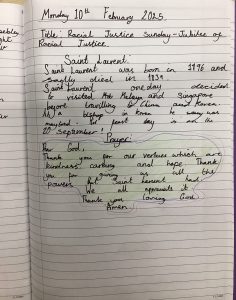 Monday 10th February 2025
Title: Racial Justice Sunday - Jubilee of
Racial Justice.
Saint Laurent.
Saint Laurent was born in 1796 and
sadly died in 1839
Saint Laurent one day decided
to visited the Malay and Singapore
before travelling to China and Korea.
As a bishop in Korea he was
martyred. feast day is on the
20 September!
Prayer:
Dear God,
Thank you for our vertues which are
kindness, caring and hope. Thank
you for giving us all the
powers that Saint Laurent had.
We all appreciate it.
Thank you loving God
Amen.